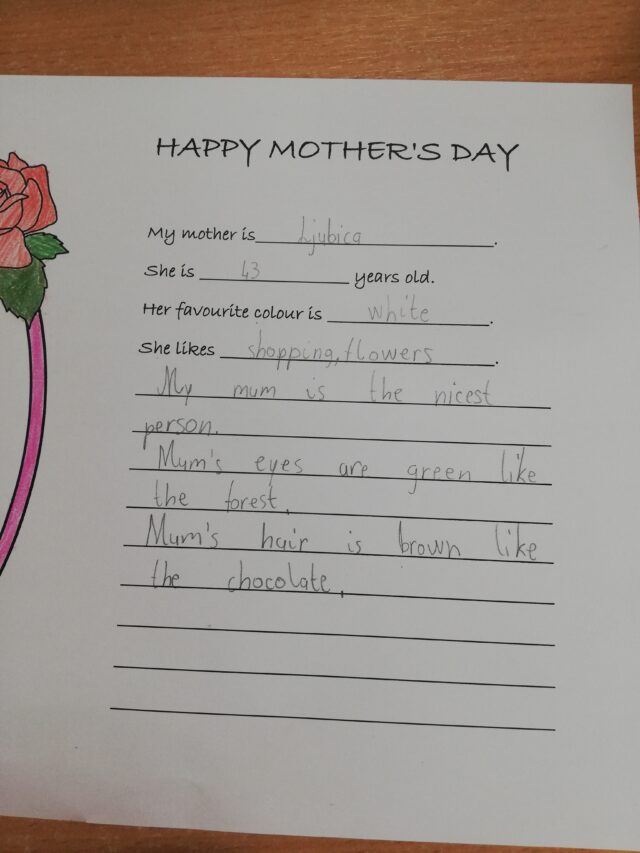 HAPPY MOTHER'S DAY
My mother is Ljubica.
She is 43 years old.
Her favourite colour is white.
She likes shopping, flowers.
My mum is the nicest
person.
Mum's eyes are green like
the forest,
Mum's hair is brown like
the chocolate,